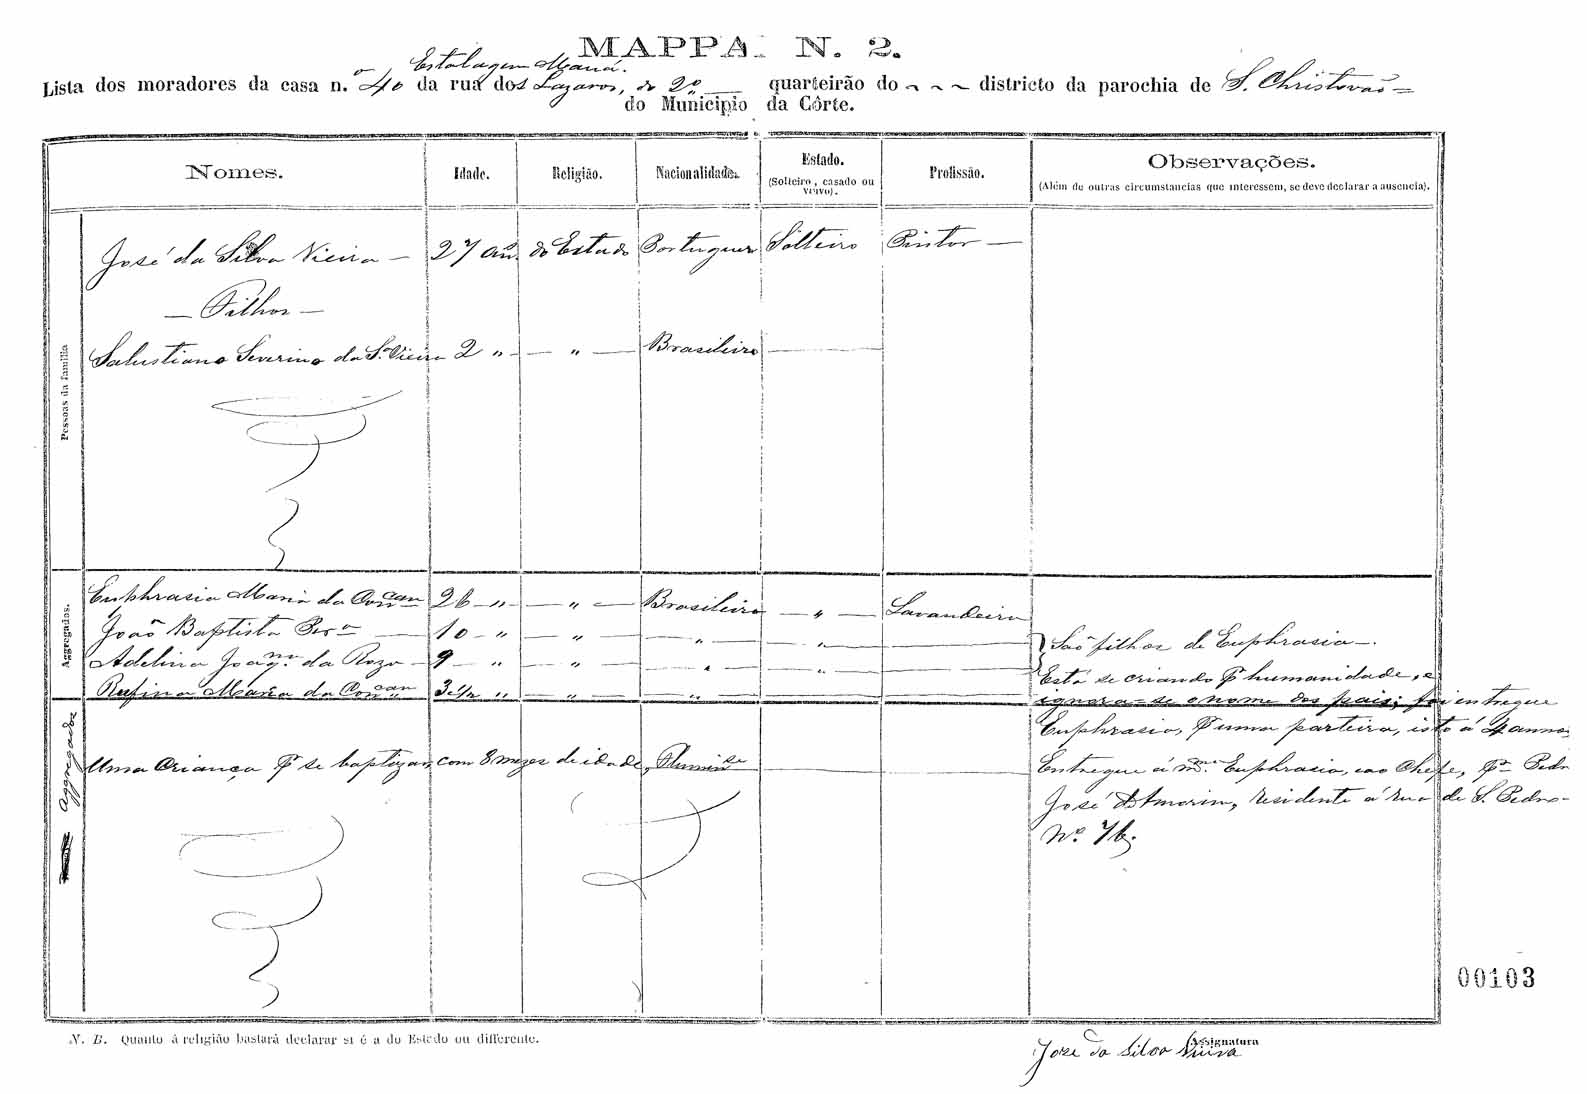 MAPPA N. 2.
Estalagem Maná.
Lista dos moradores da casa n.º 40 da rua dos Lazaros, do 2º quarteirão do districto da parochia de S. Christovão
do Municipio da Côrte.
Nomes. Idade. Religião. Nacionalidade. Estado. Profissão. Observações.
(Solteiro, casado ou viuvo). (Além de outras circumstancias que interessem, se deve declarar a ausencia).
Pessoas da familia
José da Silva Vieira — 27 an. do Estado Portuguez Solteiro Pintor —
— Filhos —
Salustiano Severino da Sª Vieira 2 " — — " — Brasileiro
Aggregados.
Euphrasia Maria da Concam 26 — " — " — Brasileira — " — Lavandeira
João Baptista Perª — 10 — " — " — " "
Adelina Joaqna da Roza — 9 — " — " — " " São filhos de Euphrasia —.
Rufina Maria da Concam 3 1/2 " " " Está se criando pr humanidade, e
ignora-se o nome dos pais; foi entregue
Euphrasia, pr uma parteira, isto á 4 annos
Aggregados
Uma Criança pr se baptizar, com 8 mezes de idade, Fluminse Entregue á mma Euphrasia, ao Chefe, pr Pedro
José d'Amorim, residente á rua de S. Pedro —
Nº 76.
00103
N. B. Quanto á religião bastará declarar si é a do Estado ou differente.
Assignatura
José da Silva Vieira